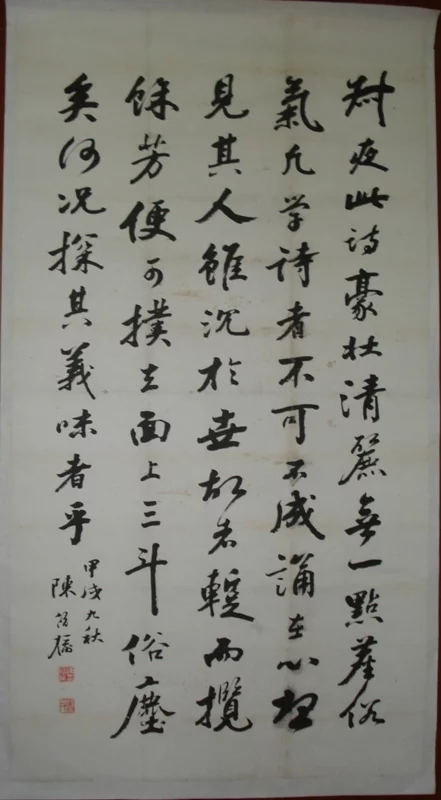 叔夜此詩豪壯清麗無一點塵俗
氣凡学詩者不可不成誦在心想
見其人雖沉於世故者蹔而攬
餘芳便可撲去面上三斗俗塵
矣何况探其義味者乎
甲戌九秋
陳